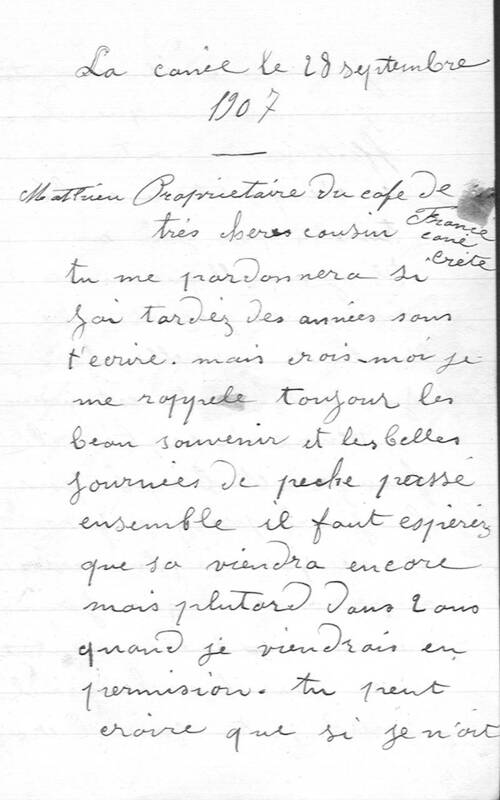 La canée le 28 septembre
1907
Mathieu Proprietaire du cafe de
France
cané
Crète
très chers cousin
tu me pardonnera si
j'ai tardéz des années sans
t'ecrire. mais crois-moi je
me rappele toujour les
beau souvenir et les belles
journées de peche passé
ensemble il faut esperéz
que sa viendra encore
mais plutard dans 2 ans
quand je viendrais en
permision. tu peut
croire que si je n'ait